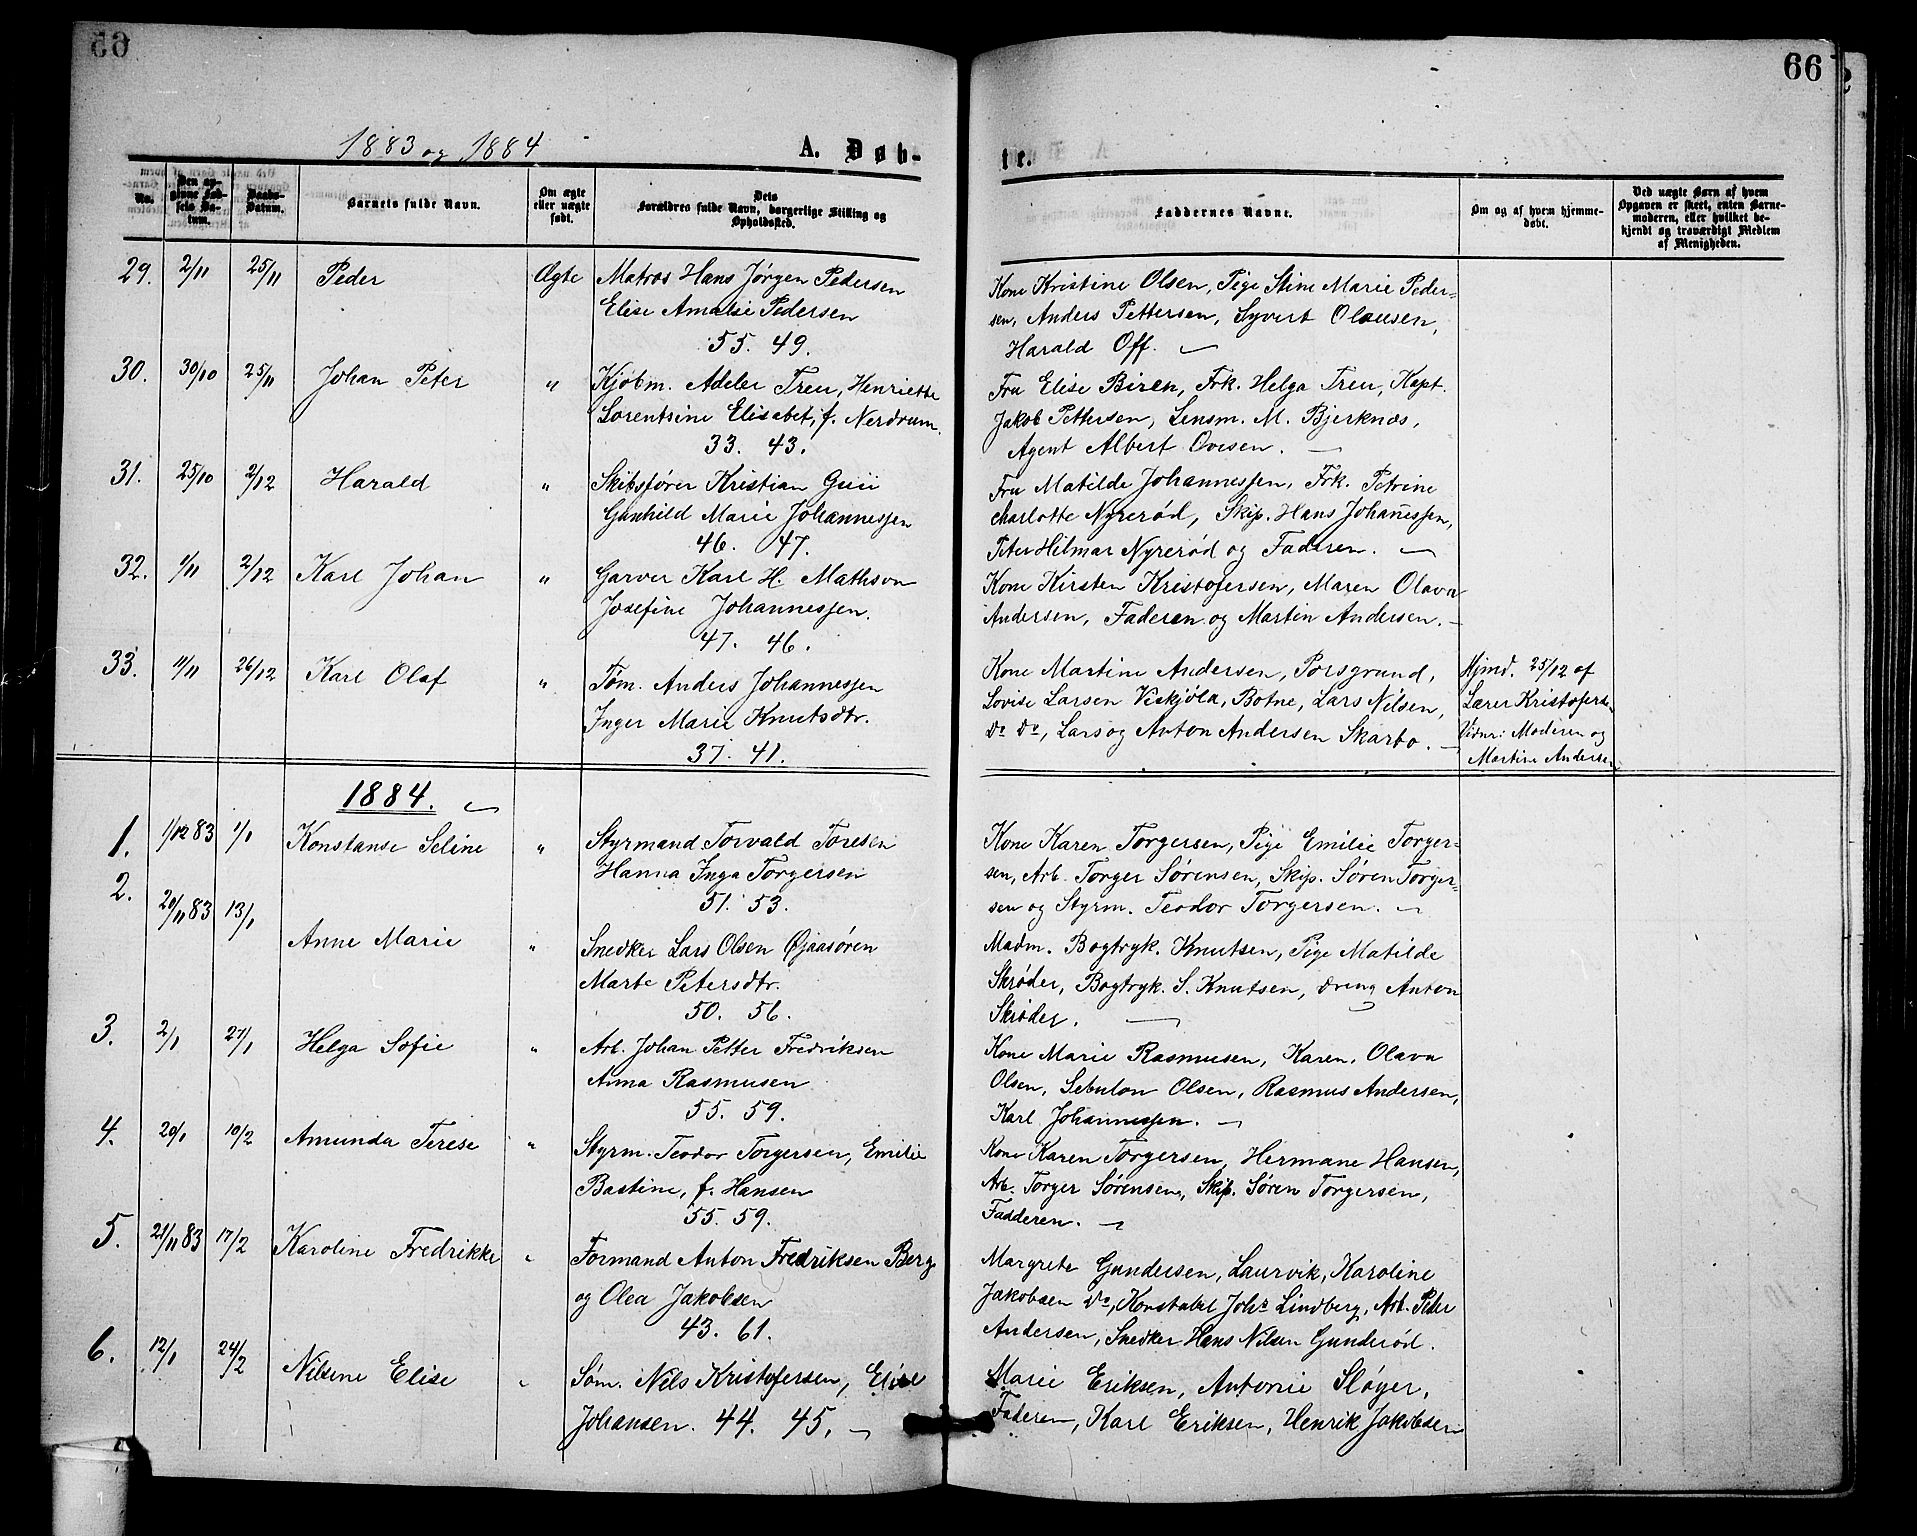 66
1883 og 1884
A. Døb-
tr.
No.
Den an-
givne Fød-
sels Da-
tum.
Daabs-
Datum.
Barnets fulde Navn.
Om ægte
eller uægte
født.
Dets
Forældres fulde Navn, borgerlige Stilling og
Opholdssted.
Faddernes Navne.
Om og af hvem hjemme-
døbt.
Ved uægte Børn af hvem
Opgaven er skeet, enten Barne-
moderen, eller hvilket be-
kjendt og troværdigt Medlem
af Menigheden.
29. 2/11 25/11 Peder Ægte Matros Hans Jørgen Pedersen
Elise Amalie Pedersen
55. 49.
Kone Kristine Olsen, Pige Stine Marie Peder-
sen, Anders Pettersen, Syvert Olausen,
Harald Off. —
30. 30/10 25/11 Johan Peter " Kjøbm. Adeler Treu, Henriette
Lorentsine Elisabet, f. Nerdrum.
33. 43.
Fru Elise Biren, Frk. Helga Treu, Kapt.
Jakob Pettersen, Lensm. M. Bjerknæs,
Agent Albert Ovesen. —
31. 25/10 2/12 Harald " Skibsfører Kristian
Gunhild Marie Johannessen
46. 47.
Fru Matilde Johannessen, Frk. Petrine
Charlotte Nyrerød, Skip. Hans Johanessen,
Peter Hilmar Nyrerød og Faderen. —
32. 1/11 2/12 Karl Johan " Garver Karl H. Mathson
Josefine Johannessen.
47. 46.
Kone Kirsten Kristofersen, Maren Olava
Andersen, Faderen og Martin Andersen. —
33. 11/11 26/12 Karl Olaf " Tøm. Anders Johannessen
Inger Marie Knutsdtr.
37. 41.
Kone Martine Andersen, Porsgrund,
Lovise Larsen Viskjøla, Botne, Lars Nilsen,
Do Do, Lars og Anton Andersen Skarbo. —
Hjmd. 25/12 af
Lærer Kristofersen
Vidnr: Moderen og
Martine Andersen
1884. —
1. 1/12 83 1/1 Konstanse Seline " Styrmand Torvald Toresen
Hanna Inga Torgersen
51. 53.
Kone Karen Torgersen, Pige Emilie Torger-
sen, Arb. Torger Sørensen, Skip. Søren Torger-
sen og Styrm. Teodor Torgersen. —
2. 20/11 83 13/1 Anne Marie " Snedker Lars Olsen Øjaasøren
Marte Petersdtr.
50. 56.
Madm. Bogtryk. Knutsen, Pige Matilde
Skrøder, Bogtryk. S. Knutsen, Dreng Anton
Skrøder. —
3. 2/1 27/1 Helga Sofie " Arb. Johan Petter Fredriksen
Anna Rasmusen
55. 59.
Kone Marie Rasmusen, Karen, Olava
Olsen, Sebulon Olsen, Rasmus Andersen,
Karl Johannessen. —
4. 20/1 10/2 Amunda Terese " Styrm. Teodor Torgersen, Emilie
Bastine, f. Hansen
55. 59.
Kone Karen Torgersen, Hermane Hansen,
Arb. Torger Sørensen, Skip. Søren Torgersen,
Fadderen. —
5. 21/11 83 17/2 Karoline Fredrikke " Formand Anton Fredriksen Berg
og Olea Jakobsen
43. 61.
Margrete Gundersen, Laurvik, Karoline
Jakobsen Do, Konstabel Johs Lindberg, Arb. Peder
Andersen, Snedker Hans Nilsen Gunderød.
6. 12/1 24/2 Nilsine Elise " Søm. Nils Kristofersen, Elise
Johansen. 44. 45. —
Marie Eriksen, Antonie Sløyer,
Faderen, Karl Eriksen, Henrik Jakobsen